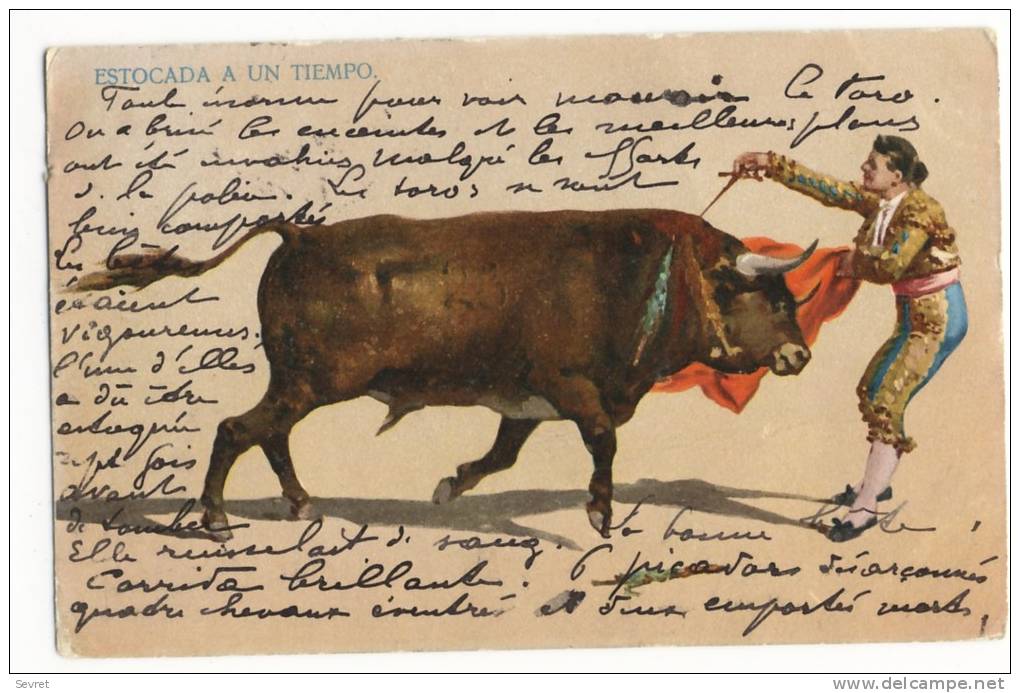 ESTOCADA A UN TIEMPO.
Foule énorme pour voir mourir le toro.
On a brisé les enceintes et les meilleures places
ont été envahies malgré les efforts
de la police. Les toros se sont
bien comportés
Les bêtes
étaient
vigoureuses.
l'une d'elles
a dû être
estoquée
sept fois
avant
de tomber
Elle ruisselait de sang. La bonne bête !
Corrida brillante. 6 picadors désarçonnés
quatre chevaux éventrés et deux emportés morts !
Sevret
www.delcampe.net